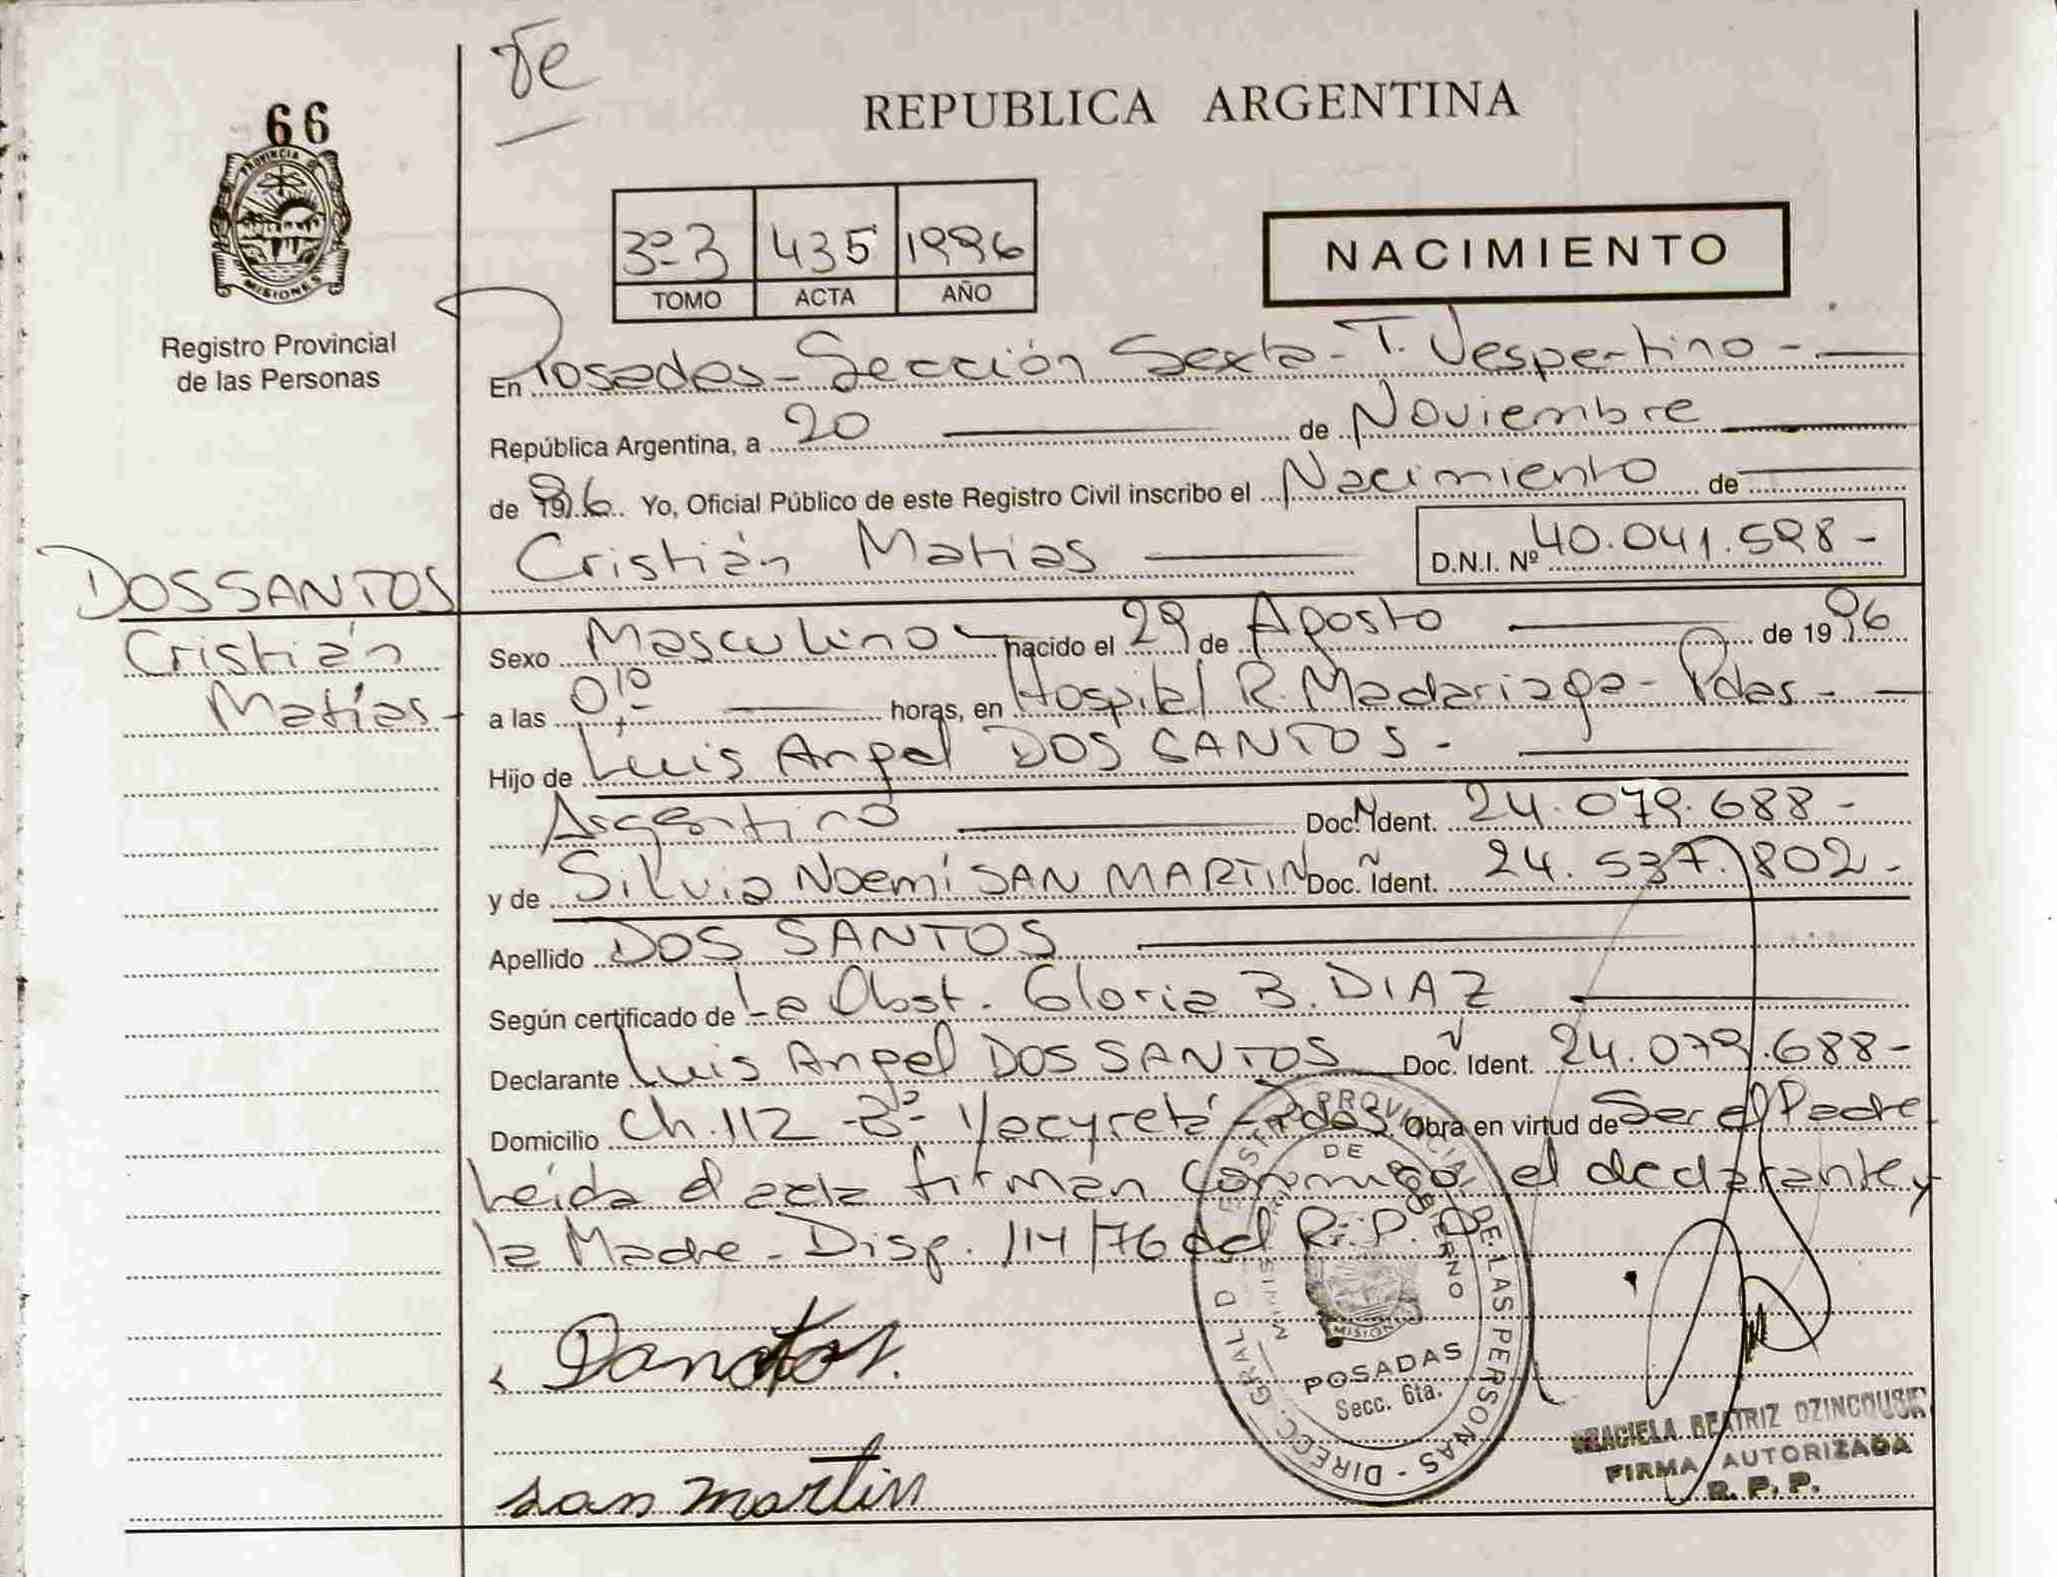 66
PROVINCIA D
MISIONES
Registro Provincial
de las Personas
REPUBLICA ARGENTINA
3º 3 435 1996
TOMO ACTA AÑO
NACIMIENTO
En Posadas - Sección Sexta - T. Vespertino -
República Argentina, a 20 de Noviembre
de 1996 Yo, Oficial Público de este Registro Civil inscribo el Nacimiento de
Cristián Matías D.N.I. Nº 40.041.598-
DOS SANTOS
Cristián
Matías-
Sexo Masculino nacido el 29 de Agosto de 1996
a las 0,10 horas, en Hospital R. Madariaga - Pdas -
Hijo de Luis Angel DOS SANTOS -
Argentino Doc. N Ident. 24.079.688-
y de Silvia Noemí SAN MARTIN Doc. Ñ Ident. 24.537.802-
Apellido DOS SANTOS
Según certificado de La Obst. Gloria B. DIAZ
Declarante Luis Angel DOS SANTOS Doc. N Ident. 24.079.688-
Domicilio Ch. 112 - Bº Yacyretá - Pdas Obra en virtud de Ser el Padre
Leída el acta firman conmigo el declarante y
la Madre - Disp. 114/76 del R. P. P.
san martin
DE LAS PERSONAS - DIRECC. GRAL D
MISIONES
POSADAS
Secc. 6ta.
GRACIELA BEATRIZ
FIRMA AUTORIZADA
R. P. P.